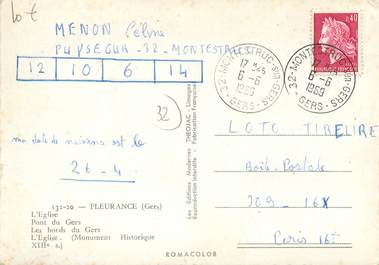 lot
MENON Céline
PUYSEGUR -32- MONTESTRUC
12 10 6 14
32
ma date de naissance est le
26-4
132-20 — FLEURANCE (Gers)
L'Eglise
Pont du Gers
Les bords du Gers
L'Eglise. (Monument Historique
XIIIe s.)
Les Editions Modernes THEOJAC - Limoges
Reproduction Interdite - Fabrication Française
ROMACOLOR
32-MONTESTRUC-sur-GERS
17 H 45
6-6
1969
GERS
32-MONTESTRUC-sur-GERS
6-6
1969
GERS
0,40
LOTO TIRELIRE
Boite Postale
209-16X
Paris 16e